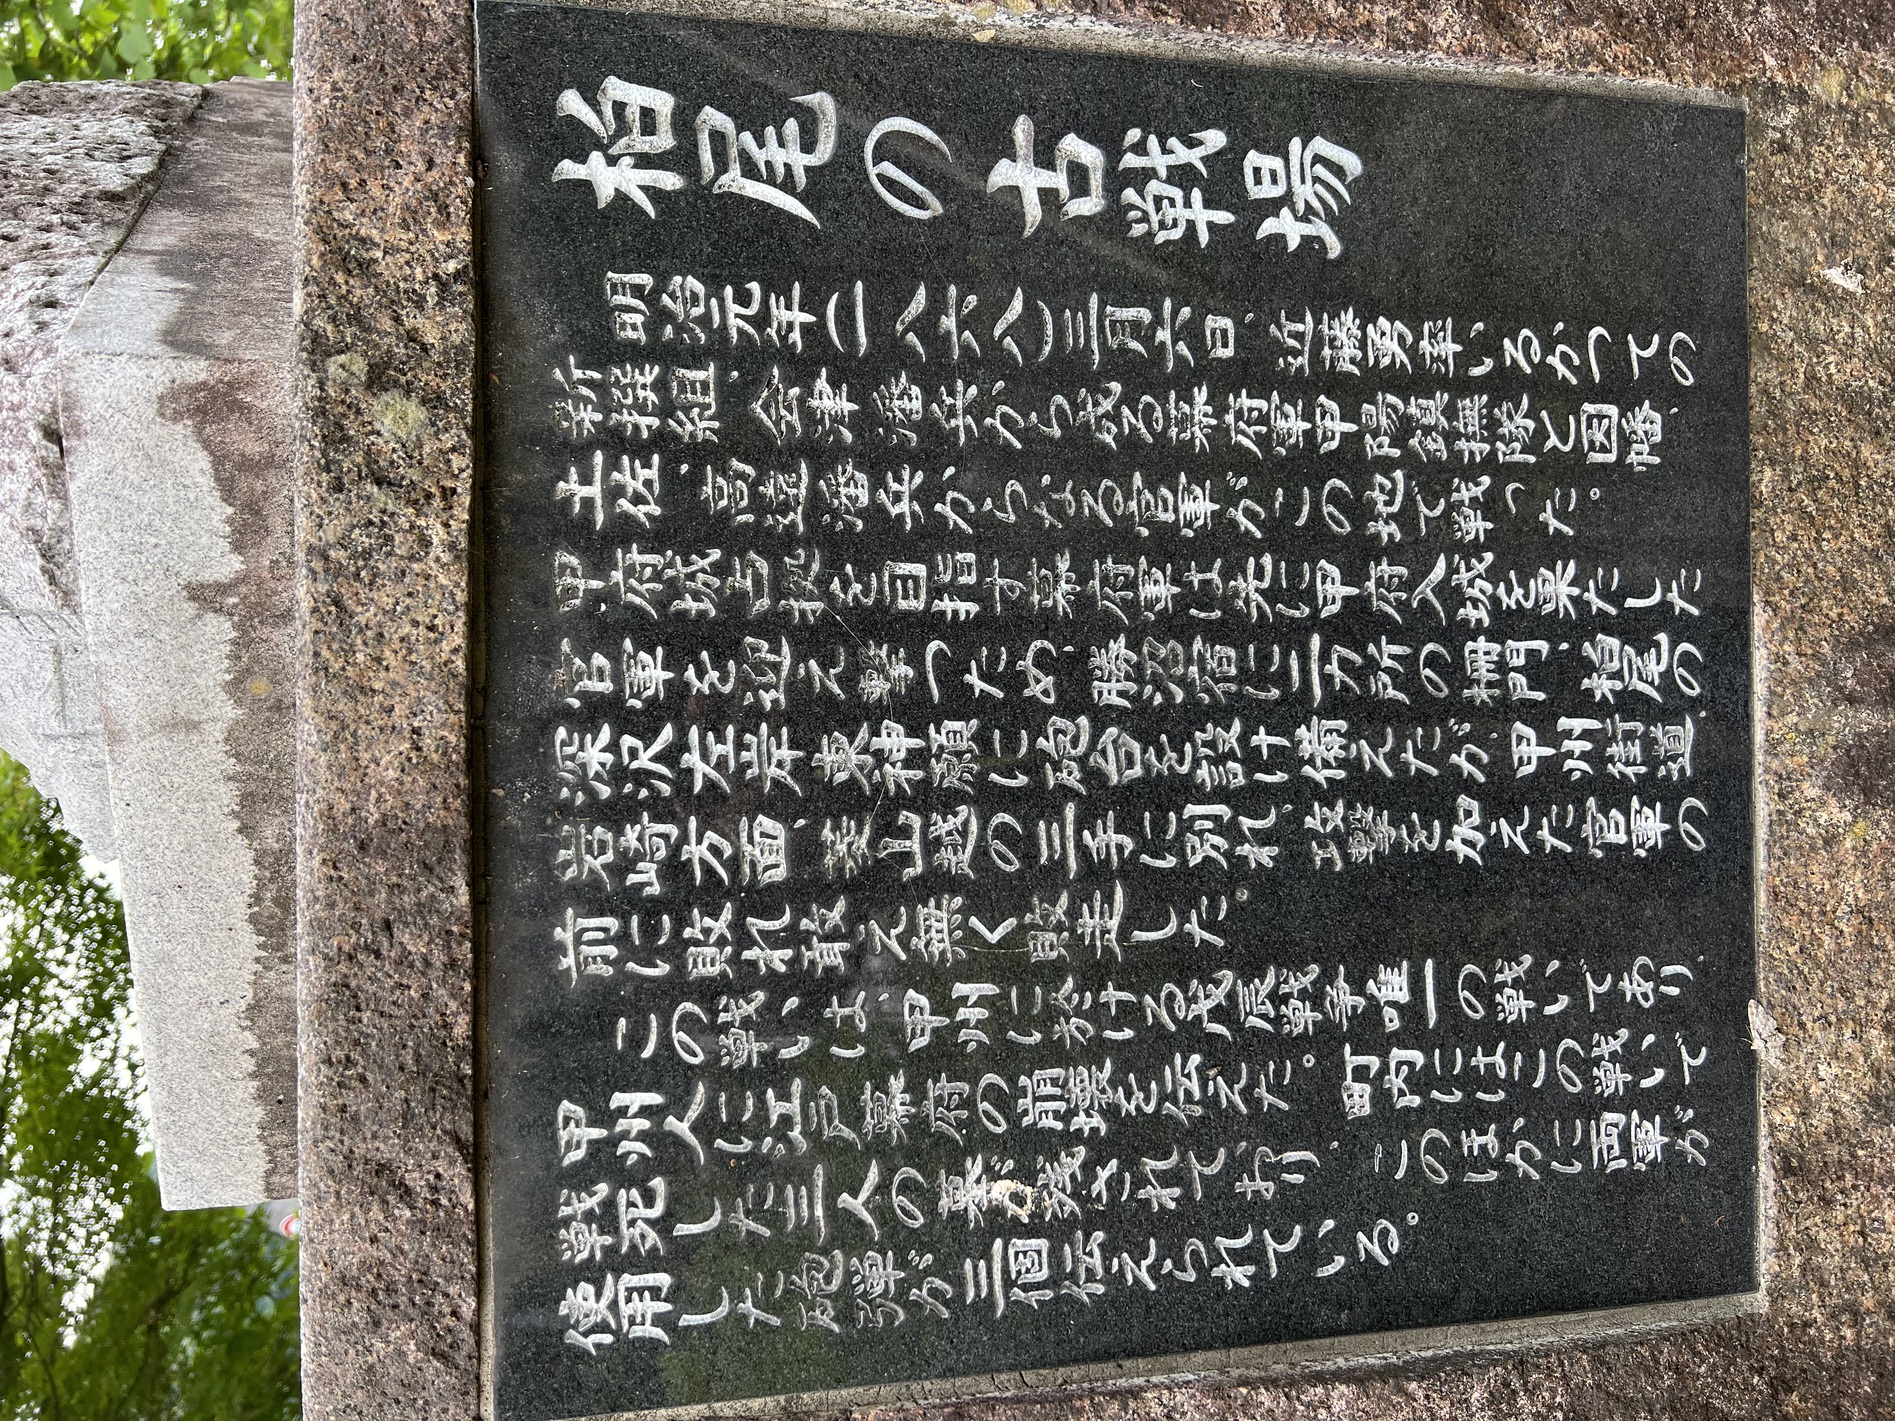 柏尾の古戦場
明治元年(一八六八)三月六日、近藤勇率いるかつての
新撰組、会津藩兵から成る幕府軍甲陽鎮撫隊と因幡、
土佐、高遠藩兵からなる官軍がこの地で戦った。
甲府城占拠を目指す幕府軍は先に甲府入城を果たした
官軍を迎え撃つため、勝沼宿に二ヵ所の柵門、柏尾の
深沢左岸東神願に砲台を設け備えたが、甲州街道、
岩崎方面、菱山越の三手に別れ、攻撃を加えた官軍の
前に敗れ敢え無く敗走した。
この戦いは、甲州に於ける戊辰戦争唯一の戦いであり、
甲州人に江戸幕府の崩壊を伝えた。町内にはこの戦いで
戦死した三人の墓が残されており、このほかに両軍が
使用した砲弾が三個伝えられている。